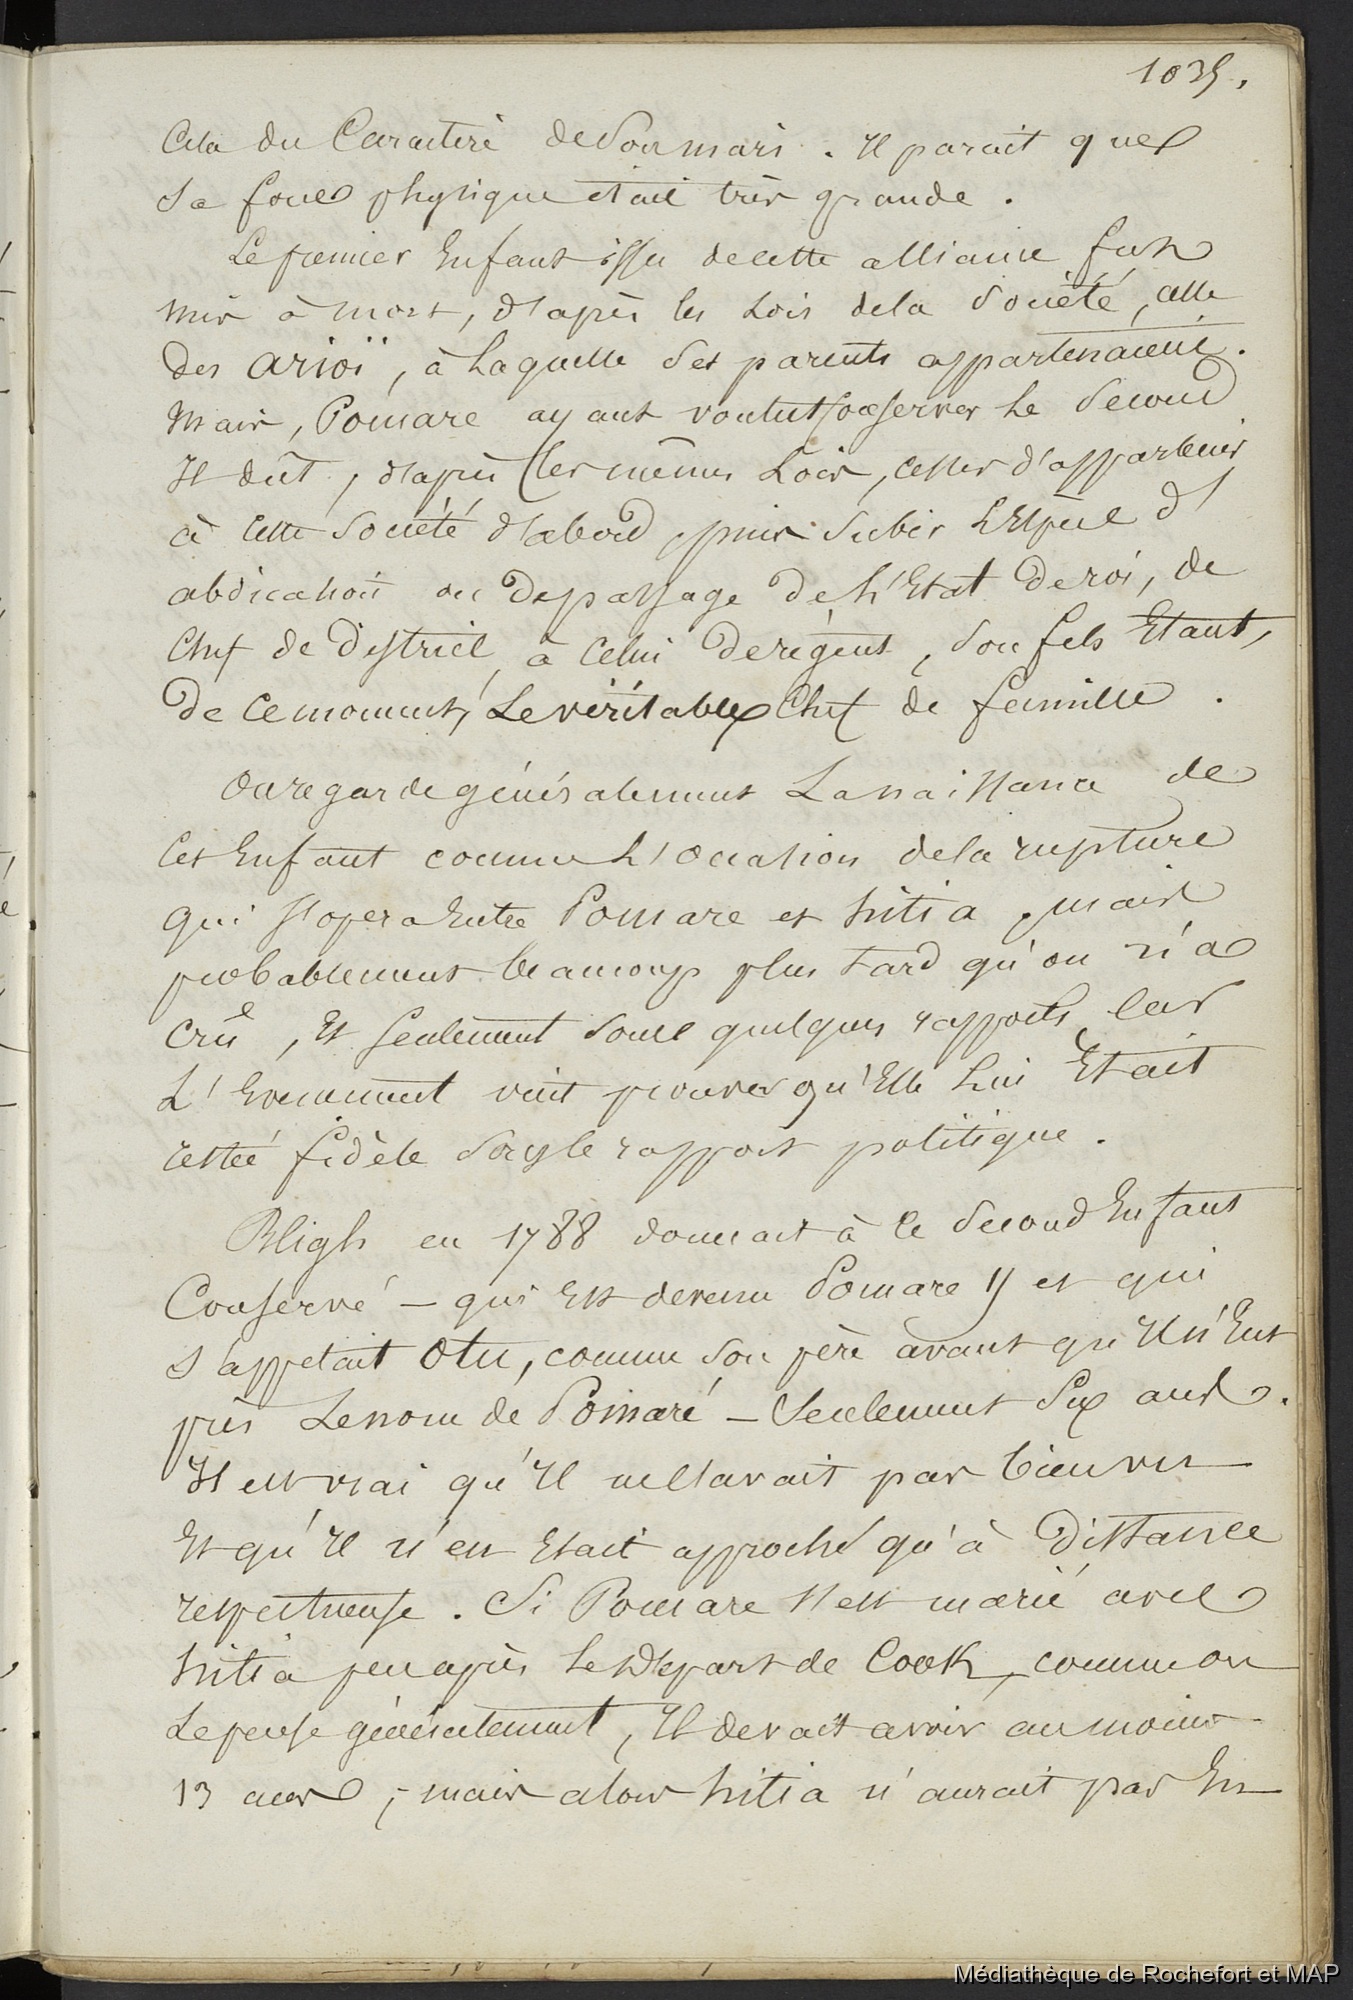 1035.
Cela du Caractère de Son mari. Il parait que
Sa force physique était très grande.
Le premier Enfant issu de cette alliance fut
mis à mort, d'après les Lois de la Société, celle
des arioï, à Laquelle Ses parents appartenaient.
Mais, Pomare ayant voulut conserver Le Second
Il dût, d'après les mêmes Lois, cesser d'appartenir
à cette Société d'abord, puis Subir L'Espèce d'
abdication ou De passage De L'Etat De roi, de
Chef de District, à Celui De régent, Son fils Etant,
De ce moment, Le véritable Chef de famille.
On regarde généralement La naissance de
Cet Enfant comme L'occasion de la rupture
qui s'opera Entre Pomare et hitia, mais
probablement beaucoup plus tard qu'on n'a
Crûe, Et Seulement Sous quelques rapports, car
L'Evenement vint prouver qu'Elle Lui Etait
restée fidèle Sous le rapport politique.
Bligh en 1788 donnait à ce Second Enfant
Conservé – qui Est devenu Pomare II et qui
S'appelait Otu, comme Son père avant qu'Il n'Eut
pris Le nom de Pomaré – Seulement Six ans.
Il est vrai qu'Il ne l'avait pas bien vu
Et qu'Il n'en Etait approché qu'à Distance
respectueuse. Si Pomare s'est marié avec
hitia peu après Le Départ de Cook, comme on
Le pense généralement, Il devait avoir au moins
13 ans; mais alors hitia n'aurait pas Eu
Médiathèque de Rochefort et MAP